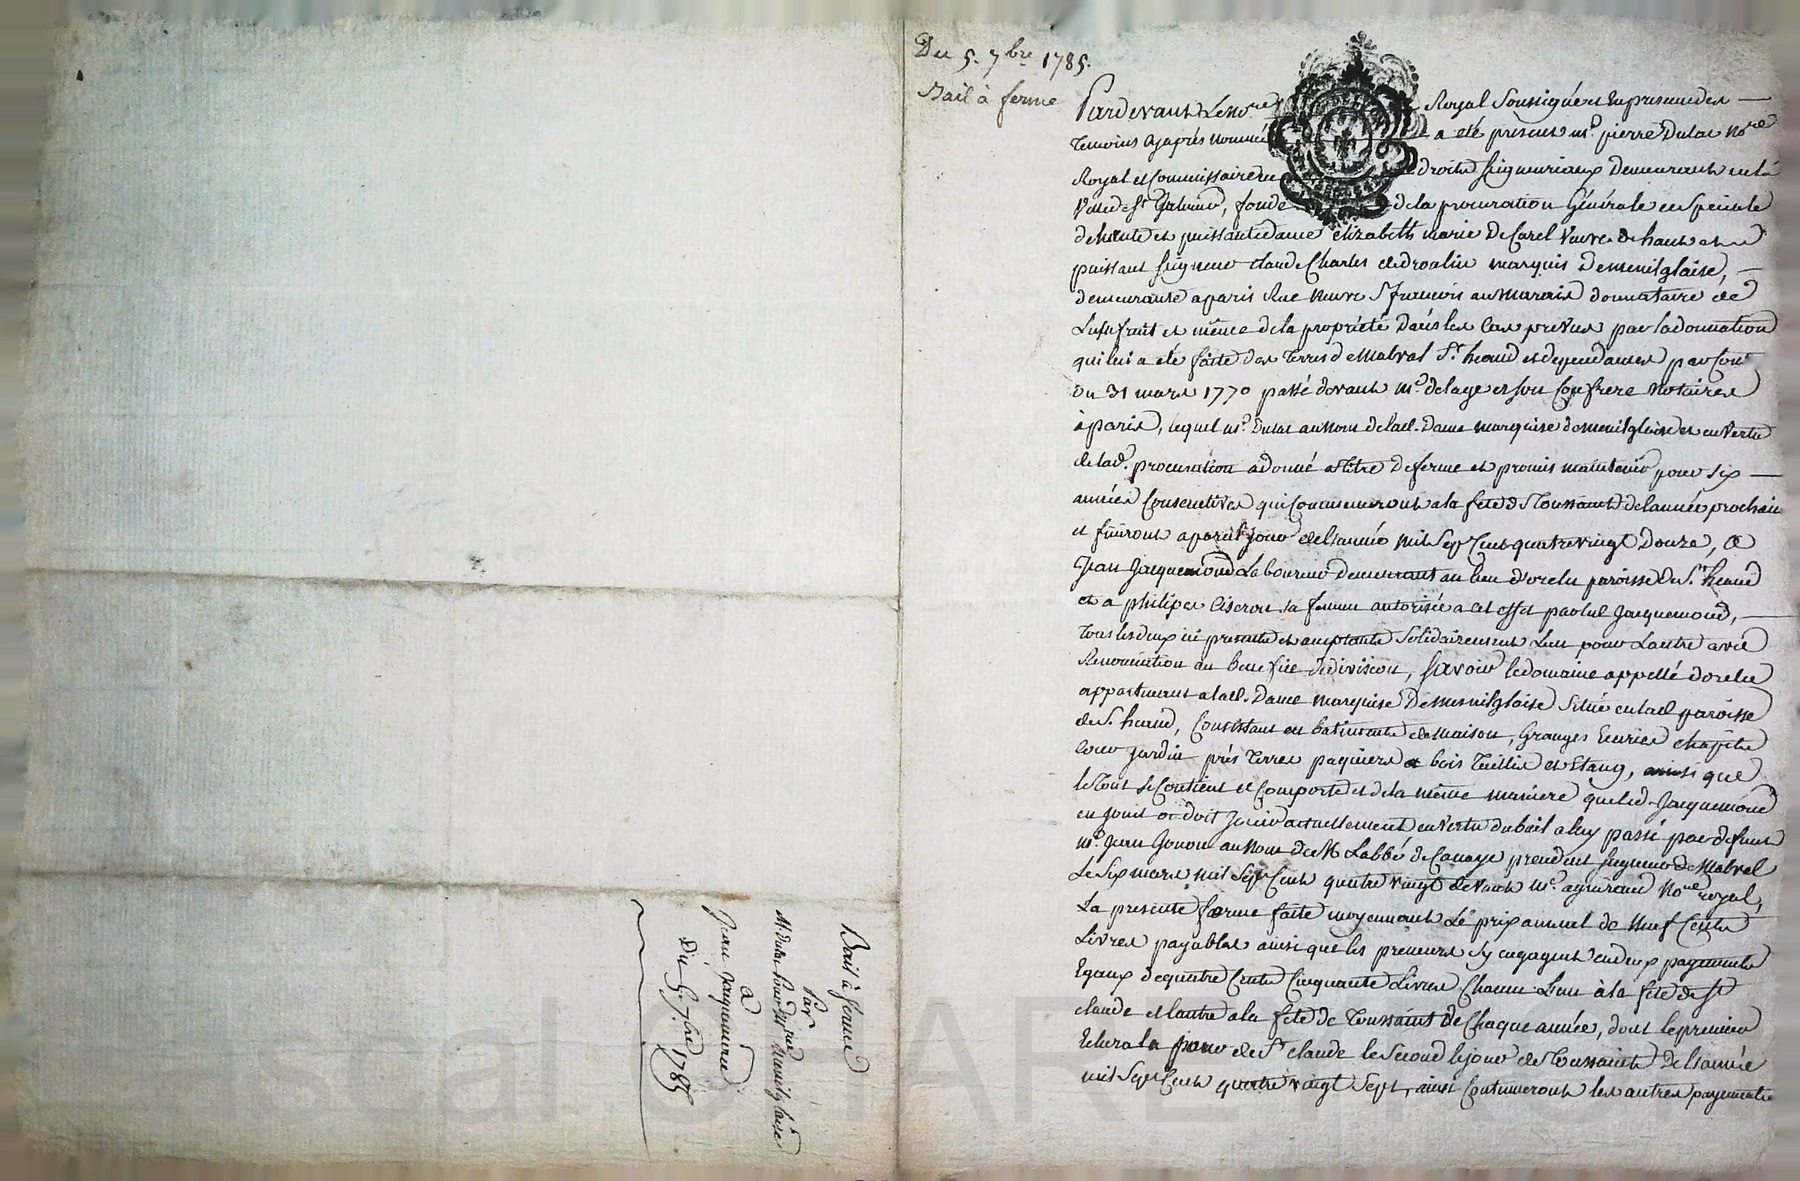 Du 5. 7bre 1785.
Bail à ferme
Pardevant Le Nore Royal Soussigné et En presence des
Temoins Cyaprés Nommés a eté present me. pierre Dulac Nore
Royal et Commissaire en droits Seigneuriaux Demeurant en la
Ville de St Galmier, fondé de la procuration Générale et Speciale
de haute et puissante dame elizabeth marie De Carel Veuve de haut et
puissant Seigneur Claude Charles de droulin marquis Demenilglaise,
demeurante a paris Rue Neuve St francois au Marais donnataire de
Lusufruit et même de la propriété dans les Cas prevus par la donnation
qui lui a eté faite des Terres de Malval St. heand et dependances par
Du 31 mars 1770 passé devant me. delage et son Confrere Notaires
à paris, lequel me. Dulac au Nom de lad. Dame marquise de menilglaise et en Vertu
de lad. procuration a donné a titre De ferme et promis maintenir pour Six
années Consecutives qui Commenceront a la fete de Toussaint de lannée prochaine
et finiront a pareil jour de lannée Mil Sept Cent quatre vingt Douze, a
Jean Jacquemond Laboureur Demeurant au lieu dorelu paroisse De St. heand
et a philipe Ciseron sa femme autorisée a cet effet par led Jacquemond,
Tous les deux ici presents et acceptants Solidairement Lun pour Lautre avec
Renonciation au benefice de division, Scavoir le domaine appellé dorelu
appartenant a lad. Dame marquise De mesnilglaise Situé en lad paroisse
de St. heand, Consistant en batiments de Maison, Granges Ecuries chapitre
Cour jardin prés Terres paquiers et bois Taillis et Etang, ainsi que
le Tout Se Contient et Comporte et de la même maniere que led. Jacquemond
en jouit et doit jouir actuellement en Vertu du bail a luy passé par defunt
me. Jean Gonon au Nom de M Labbé de Canaye prendent Seigneur de Malval
Le Six mars mil Sept Cent quatre vingt devant me. agniraud Nore royal,
La presente ferme faite moyennant Le prix annuel de Neuf Cents
Livres payables ainsi que les preneurs Sy engagent en deux payements
Egaux de quatre Cents Cinquante Livres Chacun Lun à la fete de St
Claude et Lautre a la fete de Toussaint de Chaque année, dont le premier
Echera le jour de St Claude le Second le jour de Toussaint de lannée
mil Sept Cent quatre vingt Sept, ainsi Continueront les autres payements
Bail à ferme
Par
M. Dulac Pour Me la mise demenilglaise
a
Jean Jacquemond
Du 5. 7bre 1785